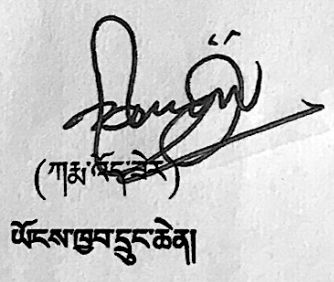 (ཀརྨ་ཡོད་ཟེར)
ཡོངས་ཁྱབ་དྲུང་ཆེན།